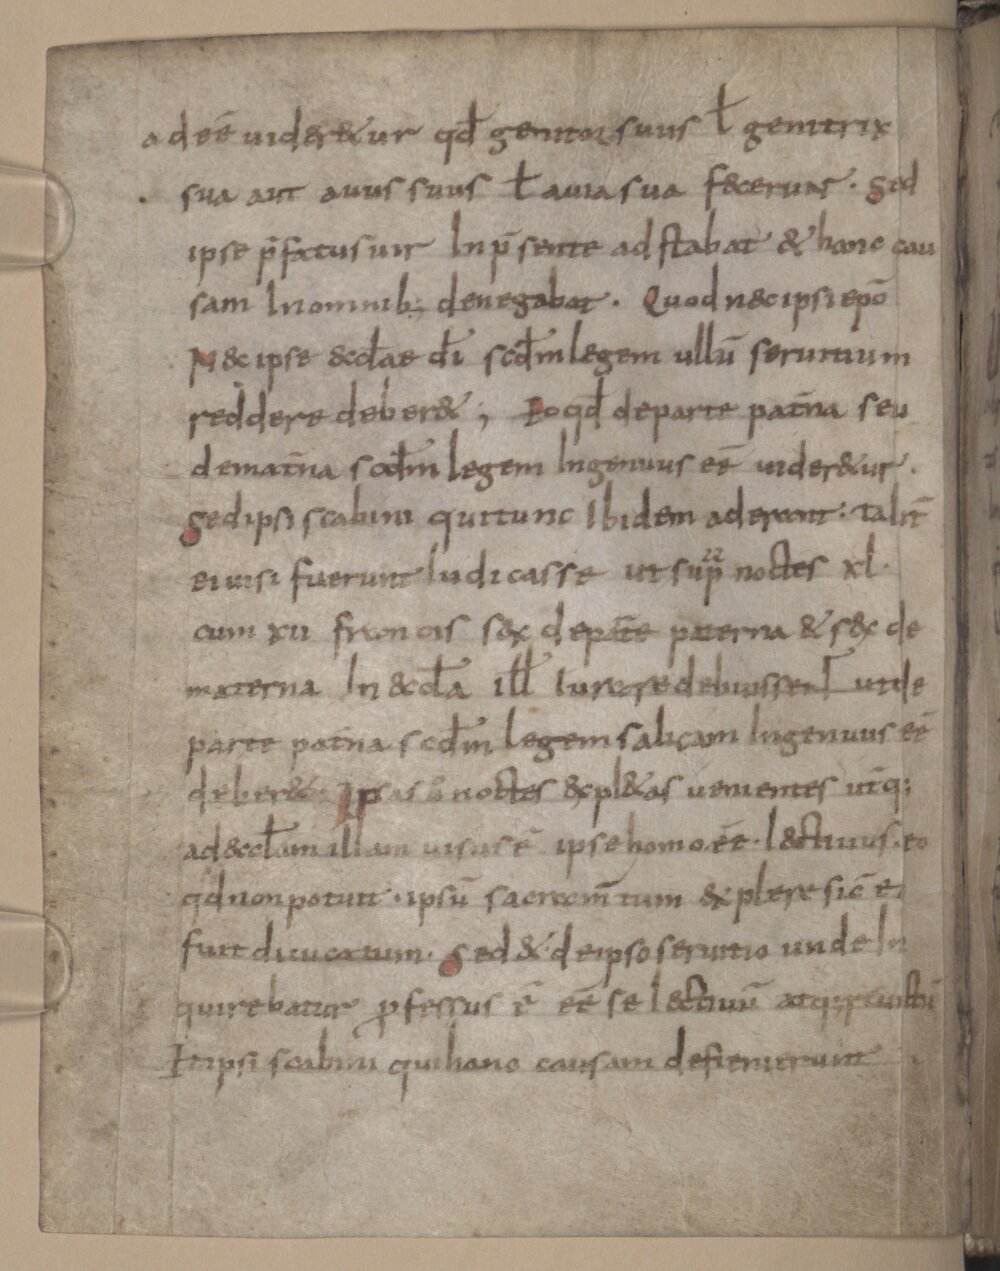 ad eē uider&ur qđ genitor suus ł genitrix
sua aut auus suus ł auia sua fecerunt. Sed
ipse p̄fatus uir In p̄sente adstabat & hanc cau
sam In omnib; denegabat. Quod nec ipsi epō
Nec ipse eccłae dī scđm legem ullū seruitium
reddere deber&; Eo qđ de parte pat̄na seu
de mat̄na scđm legem Ingenuus eē uider&ur.
Sed ipsi scabini qui tunc Ibidem aderant. talit̄
ei uisi fuerunt Iudicasse ut sup̄ noctes xl.
cum xii francis sex de parte paterna & sex de
materna In eccła ill Iurare debuisset ut de
parte pat̄na scđm legem salicam Ingenuus eē
deber&. Ipsas noctes expl&as uenientes ut̄q;
ad eccłam illam uisus ē ipse homo eē. lectiuus. eo
qđ non potuit. ipsū sacram̄tum explere sic̄ ei
fuit diiucatum. Sed & de ipso seruitio unde In
quirebatur ꝓfessus ē eē se lectiuū atq;
Et ipsi scabini qui hanc causam definierunt